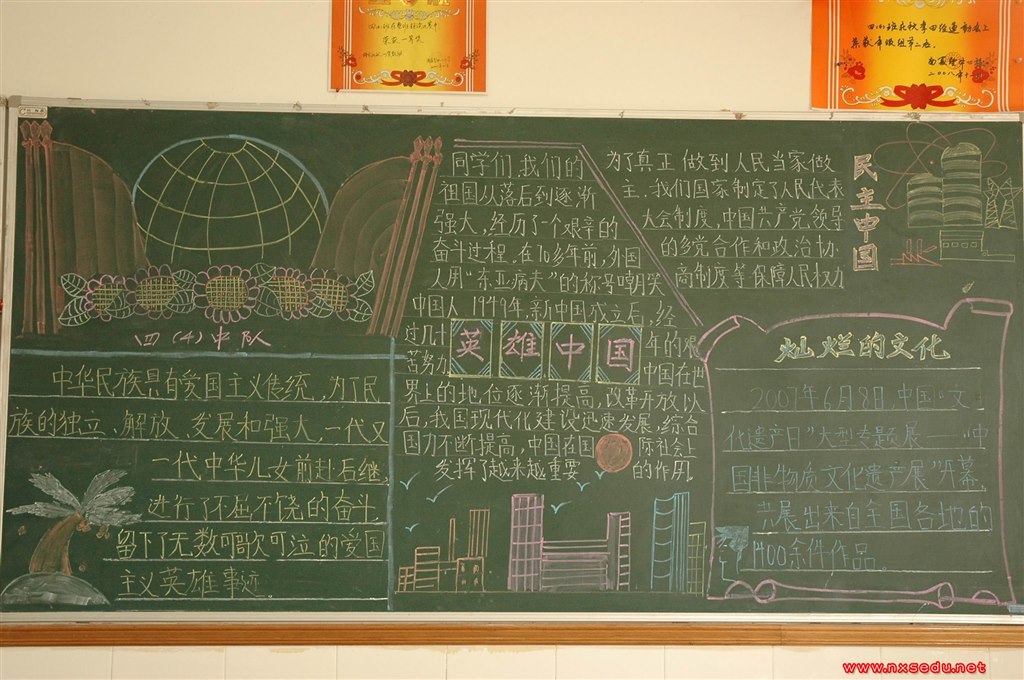 荣获一等奖
四(4)班在秋季田径运动会上
荣获年级组第二名。
四(4)中队
中华民族具有爱国主义传统,为了民
族的独立、解放、发展和强大,一代又
一代中华儿女前赴后继,
进行了不屈不饶的奋斗,
留下了无数可歌可泣的爱国
主义英雄事迹。
同学们,我们的
祖国从落后到逐渐
强大,经历了一个艰辛的
奋斗过程。在70多年前,外国
人用“东亚病夫”的称号嘲笑
中国人,1949年,新中国成立后,经
过几十年的艰
苦努力,中国在世
界上的地位逐渐提高,改革开放以
后,我国现代化建设迅速发展,综合
国力不断提高,中国在国际社会上
发挥了越来越重要的作用。
英雄中国
为了真正做到人民当家做
主,我们国家制定了人民代表
大会制度,中国共产党领导
的多党合作和政治协
商制度等保障人民权力
民主中国
灿烂的文化
2007年6月8日,中国“文
化遗产日”大型专题展——“中
国非物质文化遗产展”开幕,
共展出来自全国各地的
1400余件作品。
www.nxsedu.net